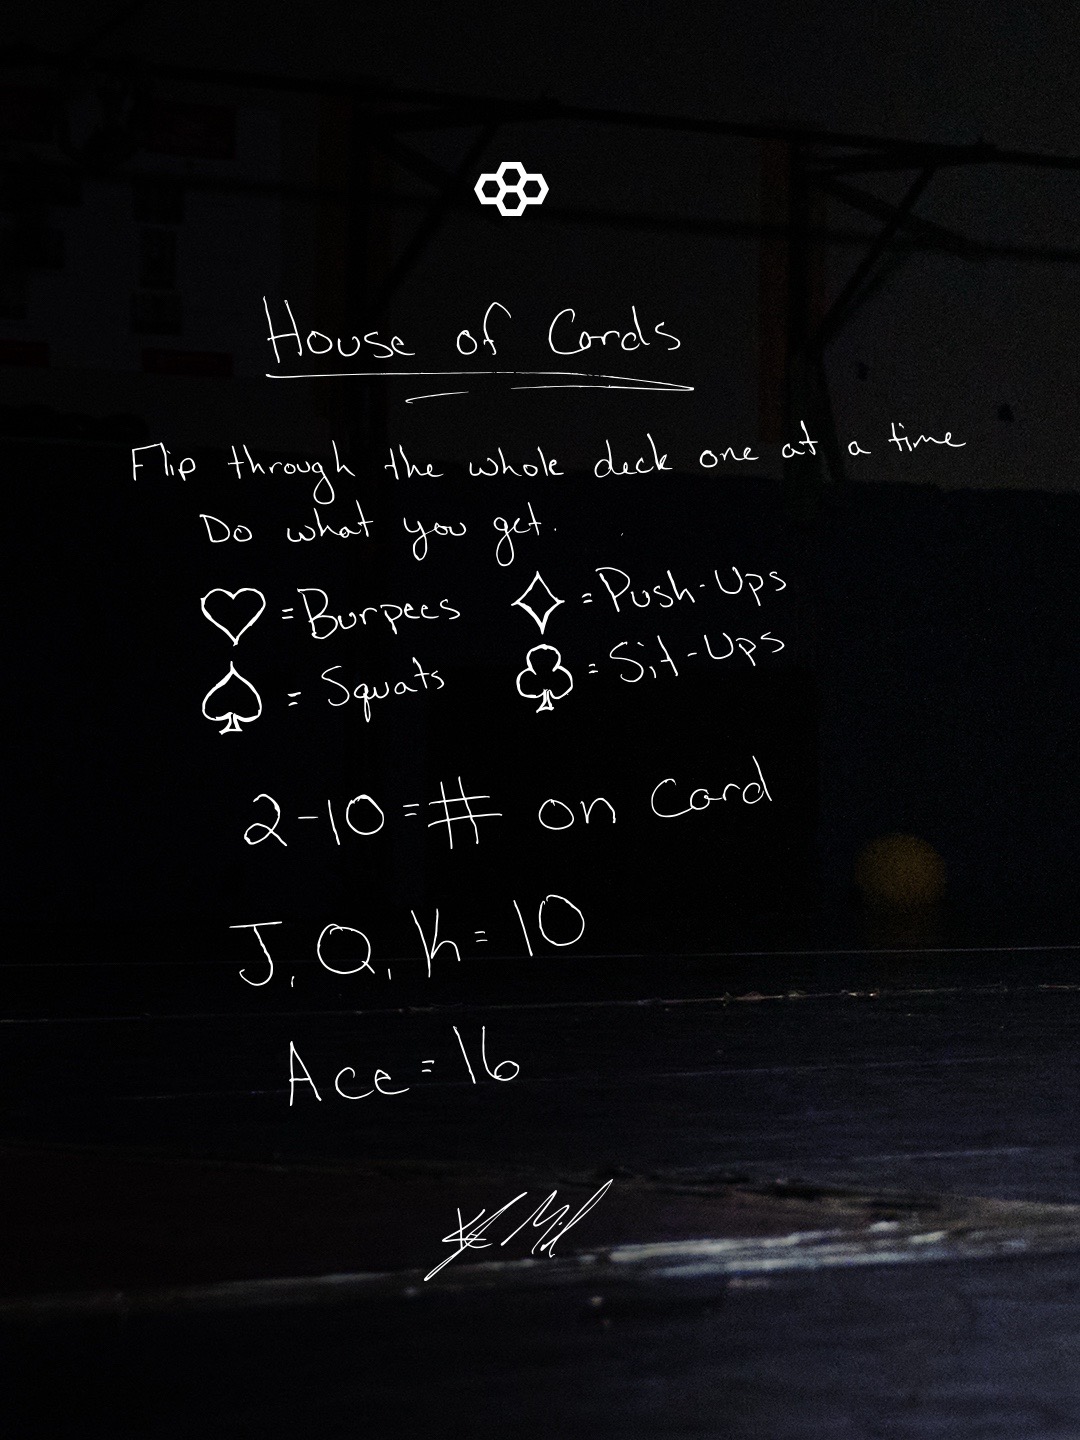 House of Cards
Flip through the whole deck one at a time
Do what you get.
♡ = Burpees ♢ = Push-Ups
♤ = Squats ♧ = Sit-Ups
2-10 = # on Card
J, Q, K = 10
Ace = 16